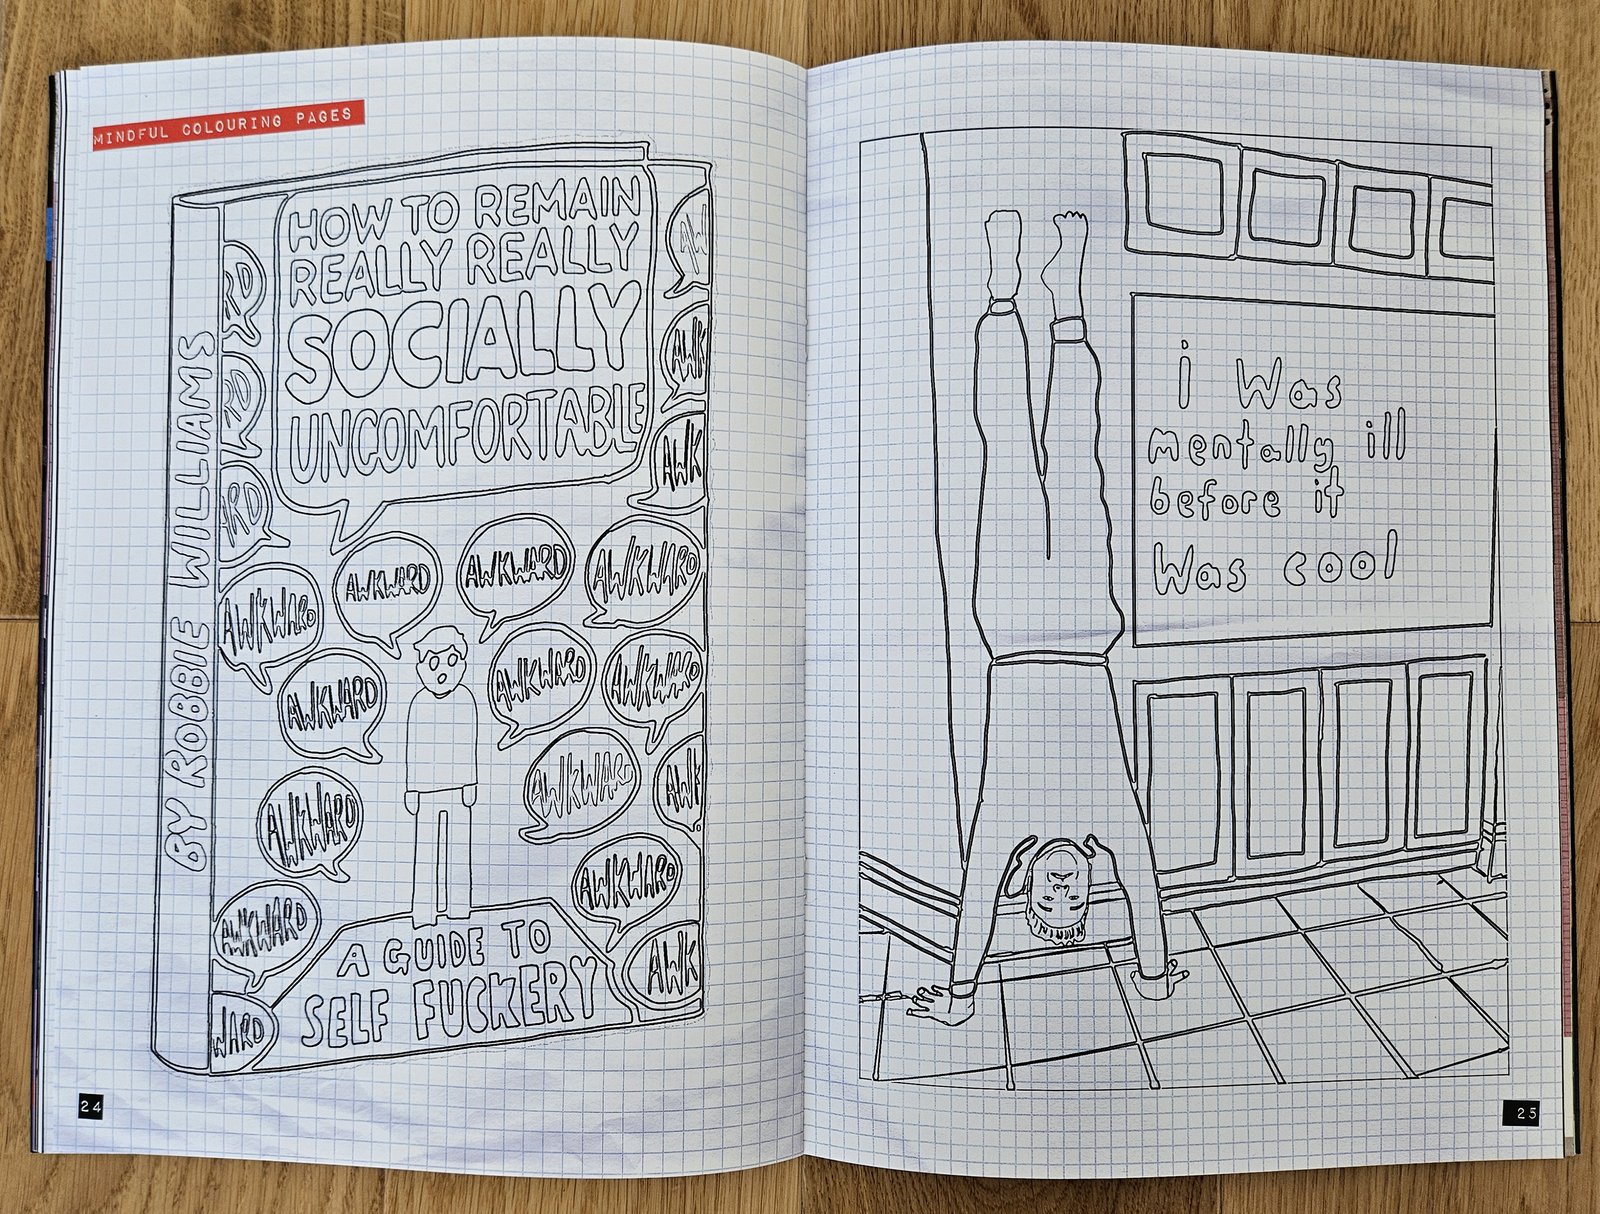 MINDFUL COLOURING PAGES
HOW TO REMAIN
REALLY REALLY
SOCIALLY
UNCOMFORTABLE
BY ROBBIE WILLIAMS
RD
RD
ARD
AW
AWK
AWK
AWKWARD
AWKWARD
AWKWARD
AWKWARD
AWKWARD
AWKWARD
AWKWARD
AWKWARD
AWKWARD
AWK
AWKWARD
AWKWARD
AWK
WARD
A GUIDE TO
SELF FUCKERY
24
i Was
mentally ill
before it
Was cool
25